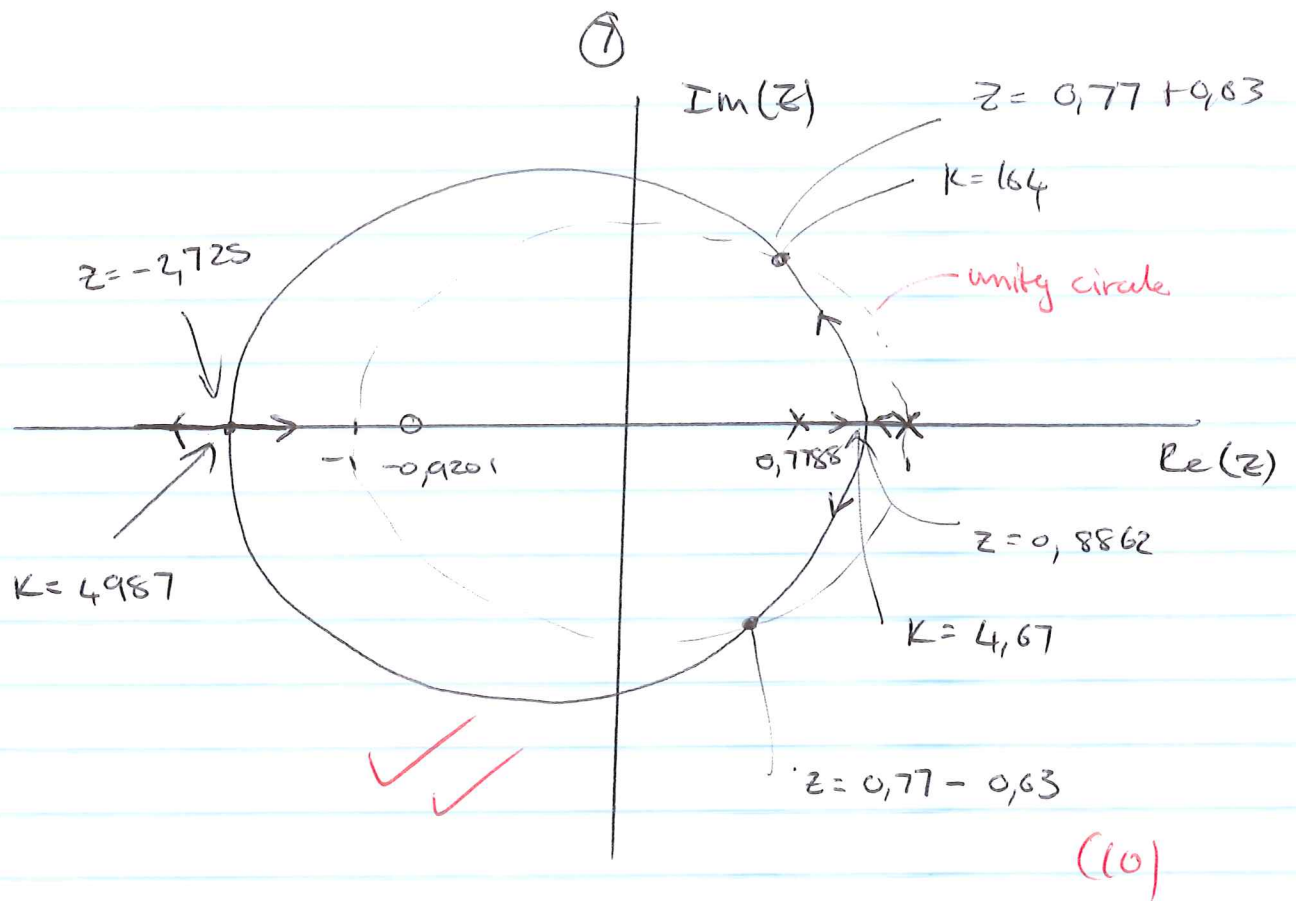 7
Im(Z)
Z = 0,77 + 0,63
K = 164
Z = -2,725
unity circle
-1
-0,9201
0,7788
1
Re(Z)
Z = 0,8862
K = 4987
K = 4,67
Z = 0,77 - 0,63
(10)